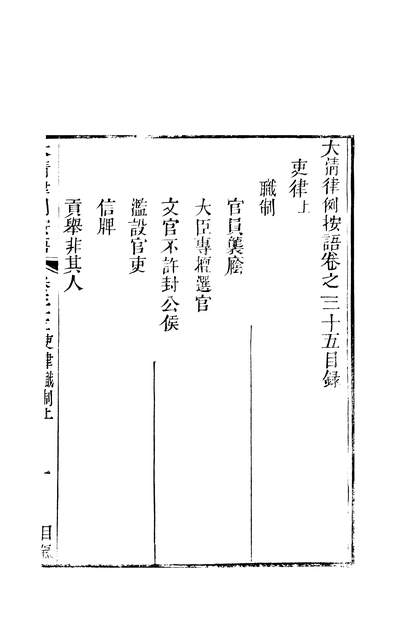 大清律例按語卷之三十五目錄
吏律上
職制
官員襲廕
大臣專擅選官
文官不許封公侯
濫設官吏
信牌
貢舉非其人
大清律例按語 卷三十五吏律職制上 一 目錄